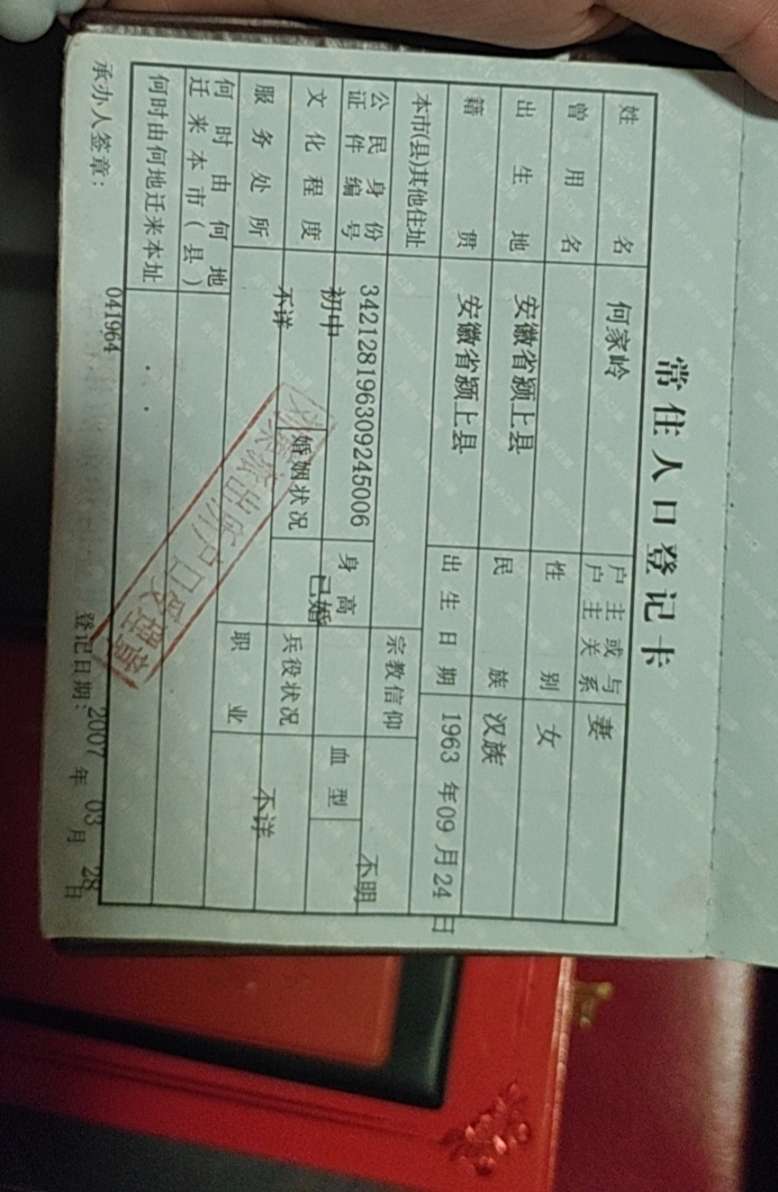 常住人口登记卡
姓名 何家岭 户主或与户主关系 妻
曾用名 性别 女
出生地 安徽省颍上县 民族 汉族
籍贯 安徽省颍上县 出生日期 1963 年09 月24 日
本市(县)其他住址 宗教信仰
公民身份证件编号 342128196309245006 身高 血型 不明
文化程度 初中 婚姻状况 已婚 兵役状况 不详
服务处所 不详 职业
何时由何地迁来本市(县)
何时由何地迁来本址
承办人签章: 041964 登记日期:2007 年 03 月 28 日